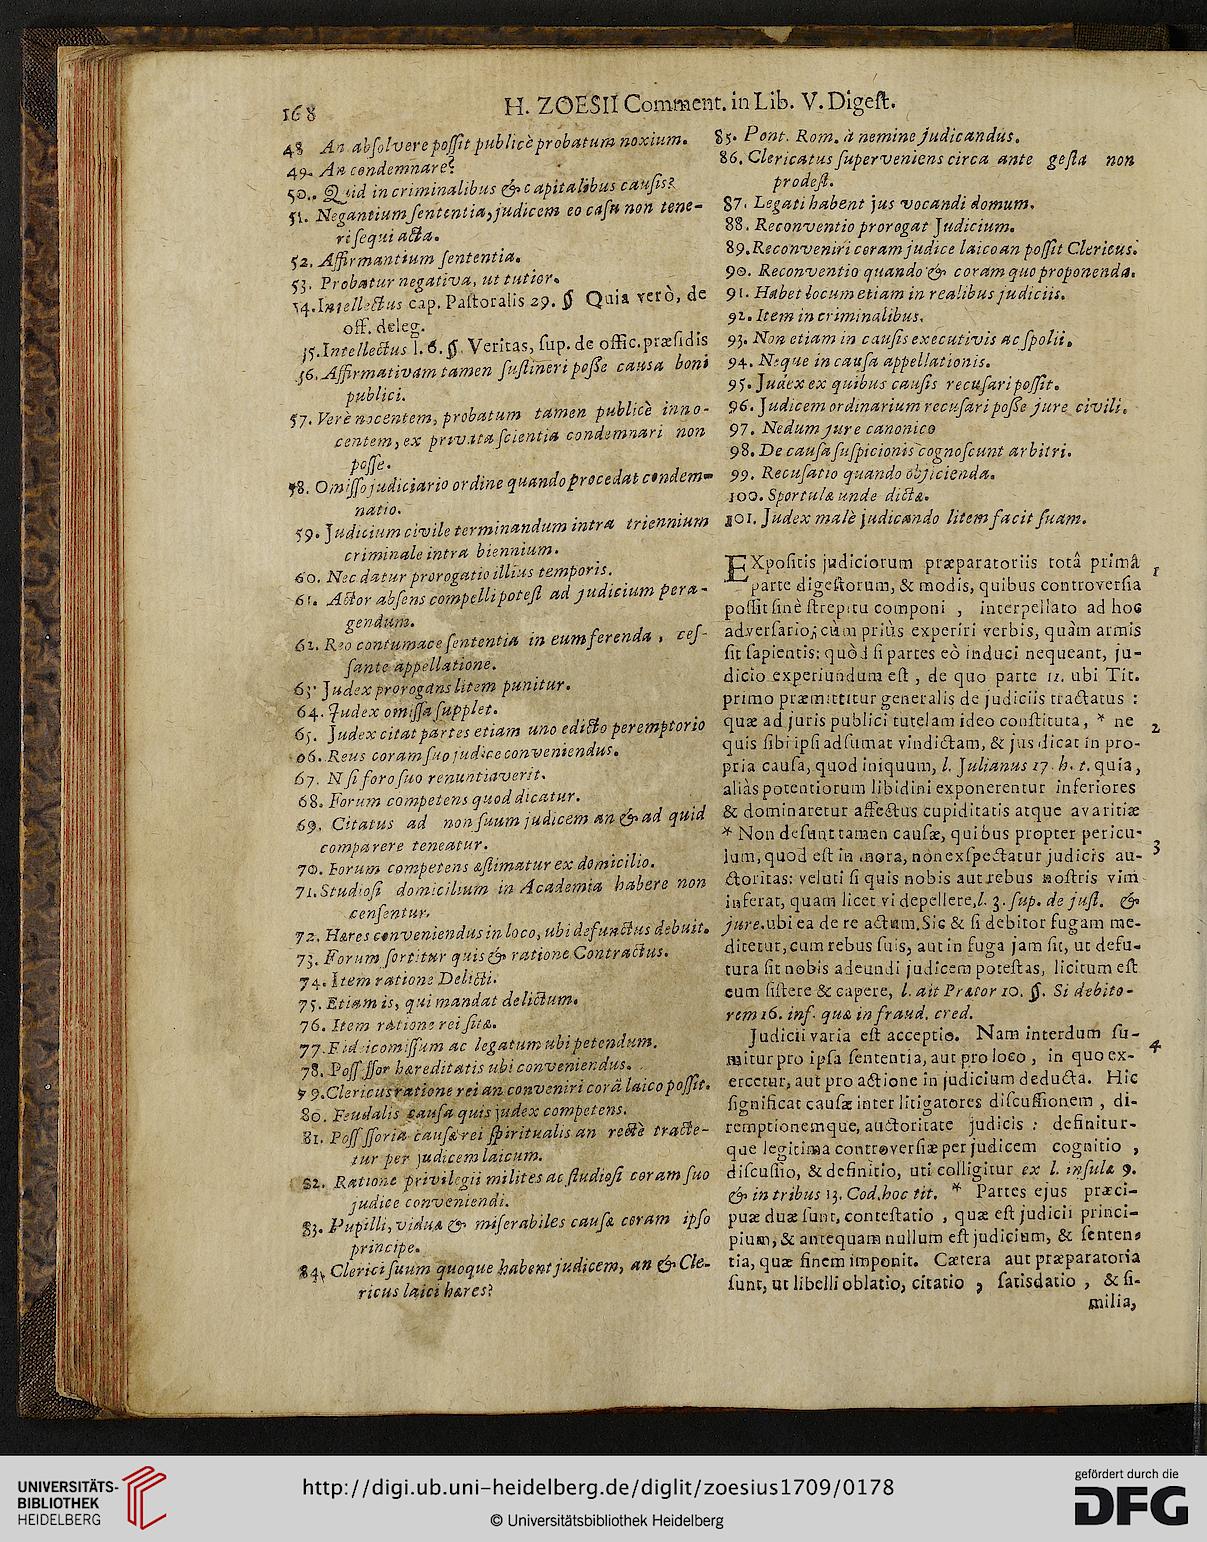 168
H. ZOESII Comment. in Lib. V. Digeſt.
48 An abſolvere poſſit publicè probatum noxium.
49. An condemnare?
50. Quid in criminalibus & capitalibus cauſis?
51. Negantium ſententia, judicem eo caſu non tene-
ri ſequi acta.
52. Affirmantium ſententia.
53. Probatur negativa, ut tutior.
54. Intellectus cap. Paſtoralis 29. § Quia verò, de
off. deleg.
55. Intellectus l. 6. §. Veritas, ſup. de offic. præſidis
56. Affirmativam tamen ſuſtineri poſſe cauſa boni
publici.
57. Verè nocentem, probatum tamen publicè inno-
centem, ex privata ſcientia condemnari non
poſſe.
58. Omiſſo judiciario ordine quando procedat condem-
natio.
59. Judicium civile terminandum intra triennium
criminale intra biennium.
60. Nec datur prorogatio illius temporis.
61. Actor abſens compelli poteſt ad judicium pera-
gendum.
62. Reo contumace ſententia in eum ferenda, ceſ-
ſante appellatione.
63. Judex prorogans litem punitur.
64. Judex omiſſa ſupplet.
65. Judex citat partes etiam uno edicto peremptorio
66. Reus coram ſuo judice conveniendus.
67. Niſi foro ſuo renuntiaverit.
68. Forum competens quod dicatur.
69. Citatus ad non ſuum judicem an & ad quid
comparere teneatur.
70. Forum competens æſtimatur ex domicilio.
71. Studioſi domicilium in Academia habere non
cenſentur.
72. Hæres conveniendus in loco, ubi defunctus debuit.
73. Forum ſortitur quis & ratione Contractus.
74. Item ratione Delicti.
75. Etiam is, qui mandat delictum.
76. Item ratione rei ſitæ.
77. Fideicomiſſum ac legatum ubi petendum.
78. Poſſeſſor hæreditatis ubi conveniendus.
79. Clericus ratione rei an conveniri corā laico poſſit.
80. Feudalis cauſa quis judex competens.
81. Poſſeſſoria cauſæ rei ſpiritualis an rectè tracte-
tur per judicem laicum.
82. Ratione privilegii milites ac ſtudioſi coram ſuo
judice conveniendi.
83. Pupilli, viduæ & miſerabiles cauſæ coram ipſo
principe.
84. Clerici ſuum quoque habent judicem, an & Cle-
ricus laici hæres?
85. Pont. Rom. à nemine judicandus.
86. Clericatus ſuperveniens circa ante geſta non
prodeſt.
87. Legati habent jus vocandi domum.
88. Reconventio prorogat Judicium.
89. Reconveniri coram judice laico an poſſit Clericus?
90. Reconventio quando & coram quo proponenda.
91. Habet locum etiam in realibus judiciis.
92. Item in criminalibus.
93. Non etiam in cauſis executivis ac ſpolii.
94. Neque in cauſa appellationis.
95. Judex ex quibus cauſis recuſari poſſit.
96. Judicem ordinarium recuſari poſſe jure civili.
97. Nedum jure canonico
98. De cauſa ſuſpicionis cognoſcunt arbitri.
99. Recuſatio quando objicienda.
100. Sportulæ unde dictæ.
101. Judex malè judicando litem facit ſuam.
EXpoſitis judiciorum præparatoriis totâ primâ 1
parte digeſtorum, & modis, quibus controverſia
poſſit ſinè ſtrepitu componi , interpellato ad hoc
adverſario; cùm priùs experiri verbis, quàm armis
ſit ſapientis: quòd ſi partes eò induci nequeant, ju-
dicio experiundum eſt , de quo parte 11. ubi Tit.
primo præmittitur generalis de judiciis tractatus :
quæ ad juris publici tutelam ideo conſtituta, * ne 2
quis ſibi ipſi adſumat vindictam, & jus dicat in pro-
pria cauſa, quod iniquum, l. Julianus 17. h. t. quia,
aliàs potentiorum libidini exponerentur inferiores
& dominaretur affectus cupiditatis atque avaritiæ
* Non deſunt tamen cauſæ, quibus propter pericu-
lum, quod eſt in mora, non exſpectatur judicis au- 3
ctoritas: veluti ſi quis nobis aut rebus noſtris vim
inferat, quam licet vi depellere, l. 3. ſup. de juſt. &
jure. ubi ea de re actum. Sic & ſi debitor fugam me-
ditetur, cum rebus ſuis, aut in fuga jam ſit, ut defu-
tura ſit nobis adeundi judicem poteſtas, licitum eſt
eum ſiſtere & capere, l. ait Prætor 10. §. Si debito-
rem 16. inf. quæ in fraud. cred.
Judicii varia eſt acceptio. Nam interdum ſu-
mitur pro ipſa ſententia, aut pro loco , in quo ex- 4
ercetur, aut pro actione in judicium deducta. Hic
ſignificat cauſæ inter litigatores diſcuſſionem , di-
remptionemque, auctoritate judicis : definitur-
que legitima controverſiæ per judicem cognitio ,
diſcuſſio, & definitio, uti colligitur ex l. inſulæ 9.
& in tribus 13. Cod. hoc tit. * Partes ejus præci-
puæ duæ ſunt, conteſtatio , quæ eſt judicii princi-
pium, & antequam nullum eſt judicium, & ſenten-
tia, quæ finem imponit. Cætera aut præparatoria
ſunt, ut libelli oblatio, citatio , ſatisdatio , & ſi-
milia,
UNIVERSITÄTS-
BIBLIOTHEK
HEIDELBERG
http://digi.ub.uni-heidelberg.de/diglit/zoesius1709/0178
© Universitätsbibliothek Heidelberg
gefördert durch die
DFG